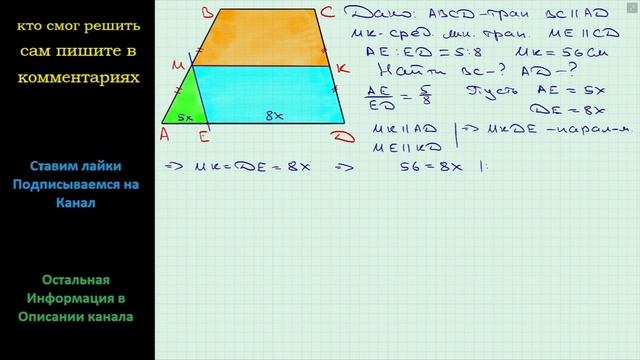 кто смог решить
сам пишите в
комментариях
Ставим лайки
Подписываемся на
Канал
Остальная
Информация в
Описании канала
B C
M K
A E D
5x 8x
Дано: ABCD-трап BC||AD
MK-сред. лин. трап. ME||CD
AE:ED=5:8 MK=56см
Найти BC-? AD-?
AE/ED = 5/8 Пусть AE=5x
DE=8x
MK||AD | => MKDE-парал-м
ME||KD
=> MK=DE=8x => 56=8x |: